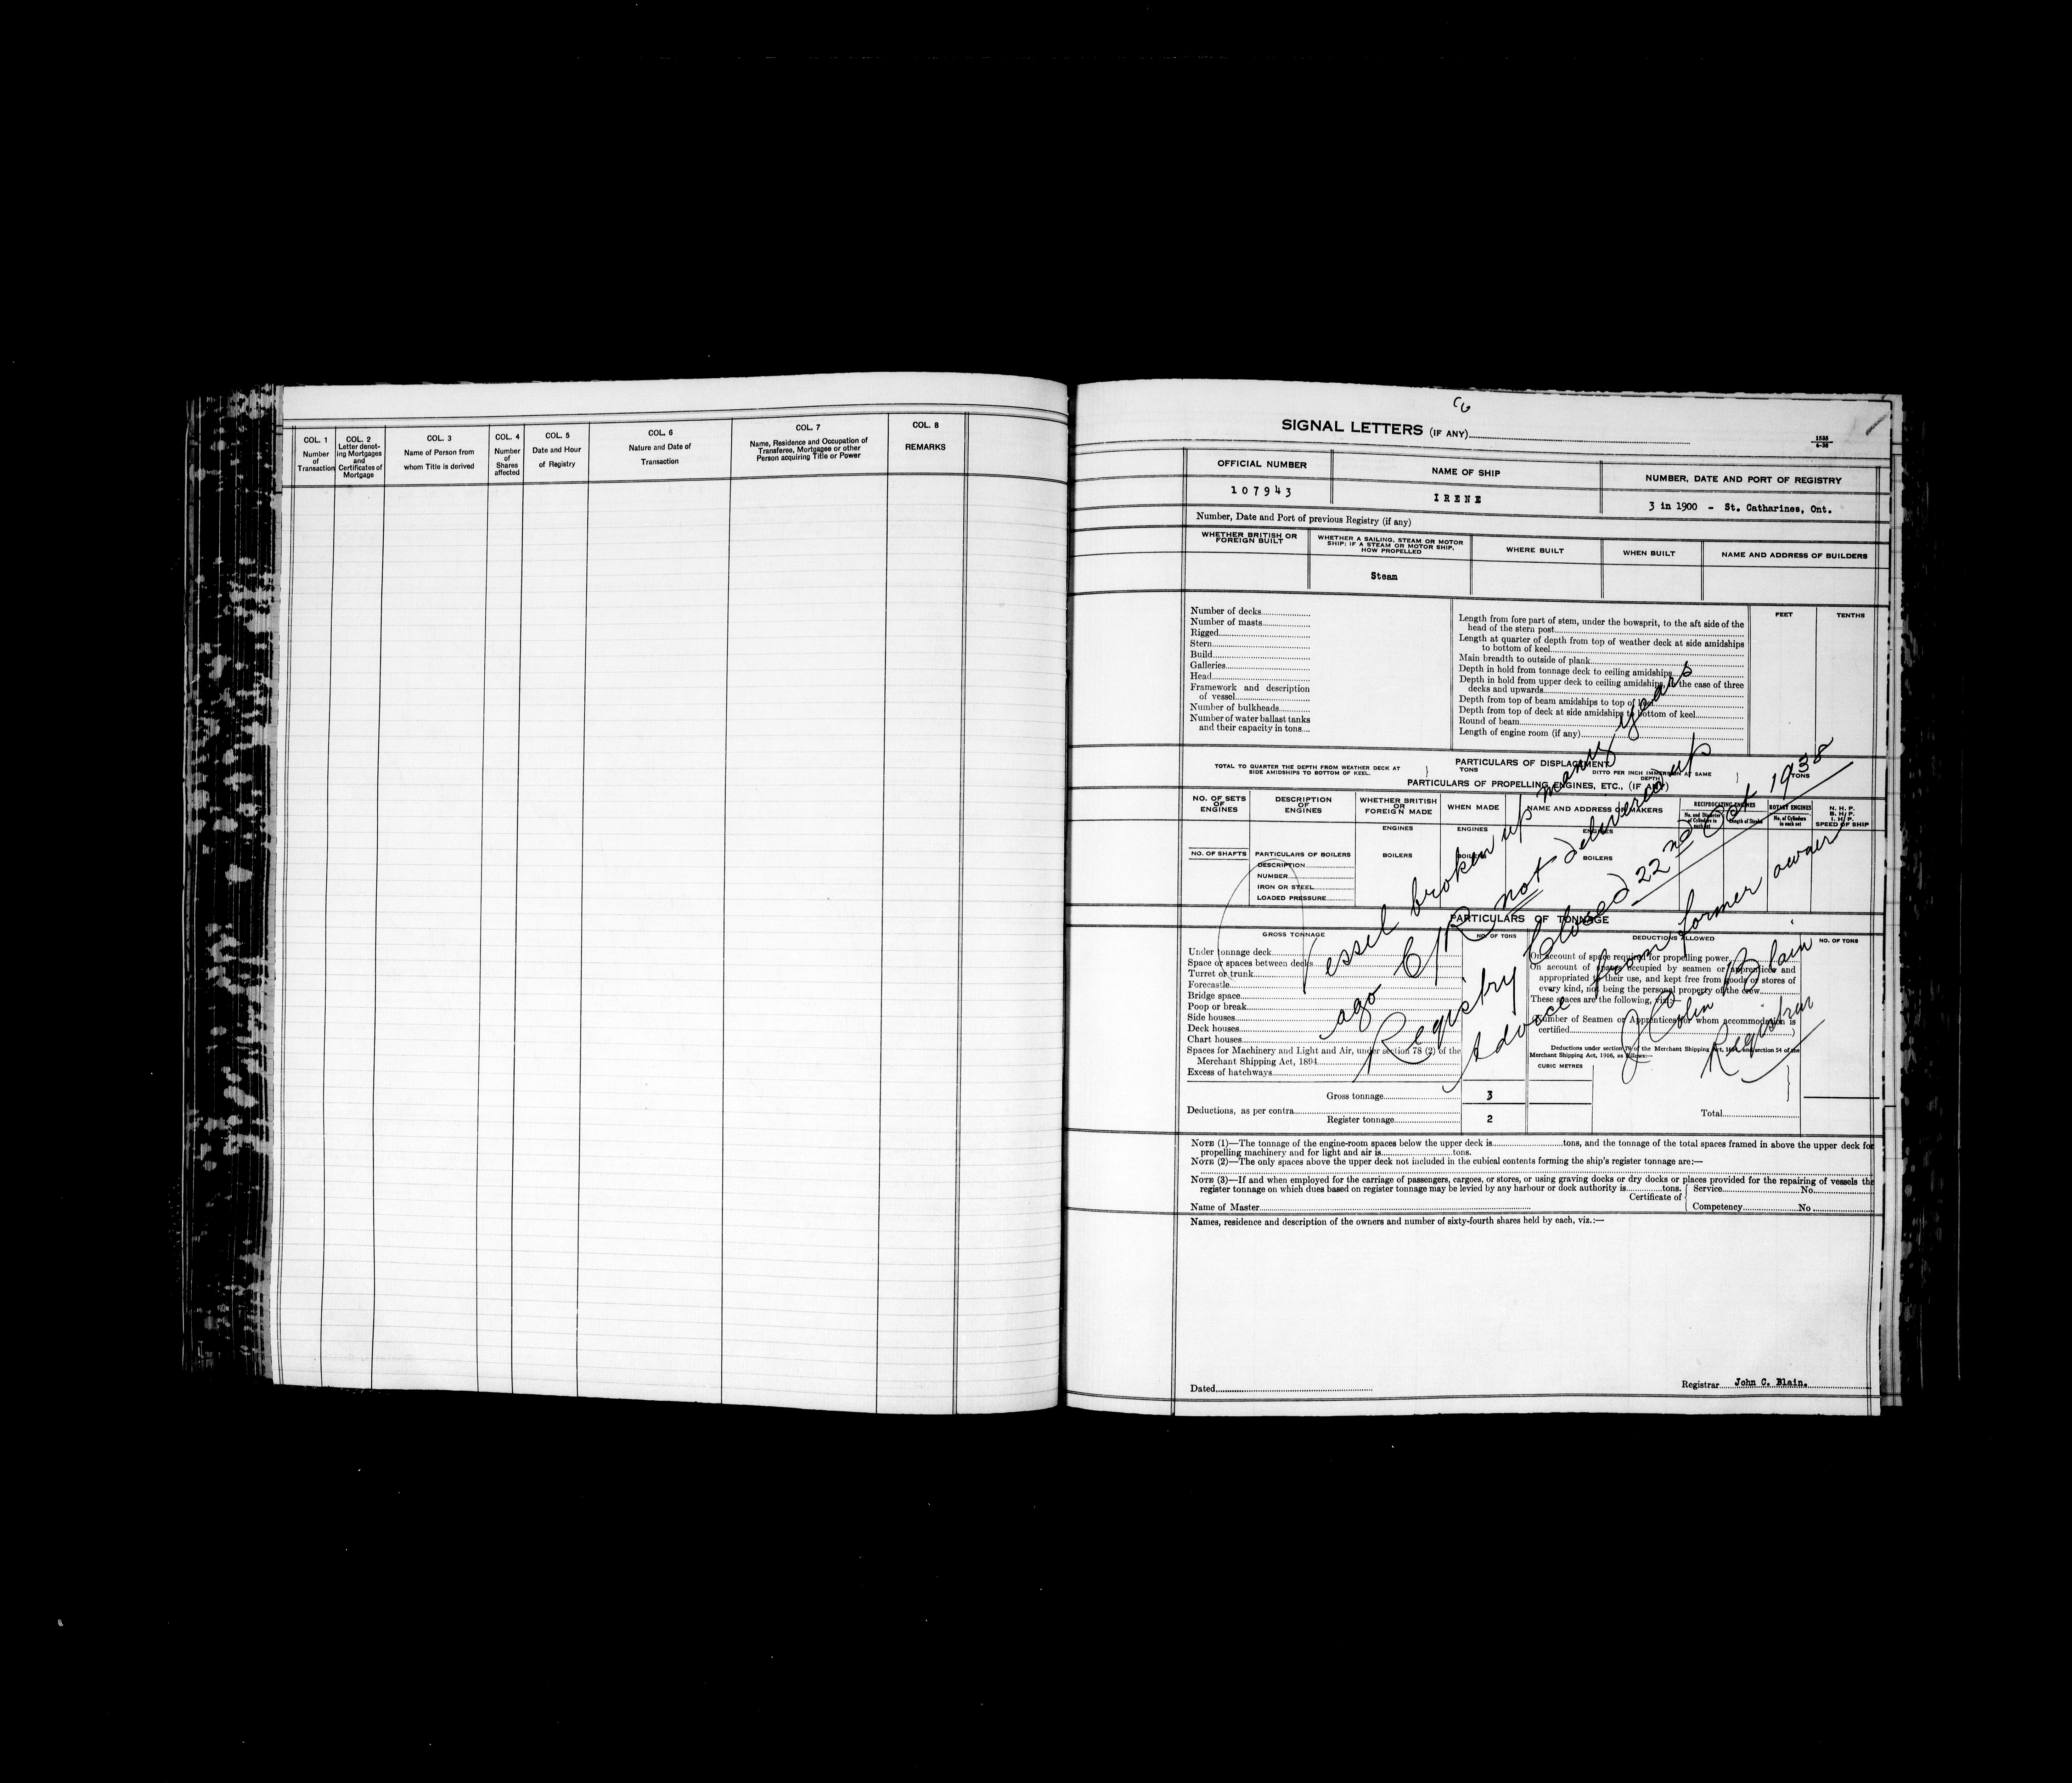 COL. 1
Number
of
Transaction
COL. 2
Letter denot-
ing Mortgages
and
Certificates of
Mortgage
COL. 3
Name of Person from
whom Title is derived
COL. 4
Number
of
Shares
affected
COL. 5
Date and Hour
of Registry
COL. 6
Nature and Date of
Transaction
COL. 7
Name, Residence and Occupation of
Transferee, Mortgagee or other
Person acquiring Title or Power
COL. 8
REMARKS
SIGNAL LETTERS (IF ANY)
OFFICIAL NUMBER
107943
NAME OF SHIP
IRENE
NUMBER, DATE AND PORT OF REGISTRY
3 in 1900 - St. Catharines, Ont.
Number, Date and Port of previous Registry (if any)
WHETHER BRITISH OR
FOREIGN BUILT
WHETHER A SAILING, STEAM OR MOTOR
SHIP; IF A STEAM OR MOTOR SHIP,
HOW PROPELLED
Steam
WHERE BUILT
WHEN BUILT
NAME AND ADDRESS OF BUILDERS
Number of decks
Number of masts
Rigged
Stern
Build
Galleries
Head
Framework and description
of vessel
Number of bulkheads
Number of water ballast tanks
and their capacity in tons
FEET
TENTHS
Length from fore part of stem, under the bowsprit, to the aft side of the
head of the stern post
Length at quarter of depth from top of weather deck at side amidships
to bottom of keel
Main breadth to outside of plank
Depth in hold from tonnage deck to ceiling amidships
Depth in hold from upper deck to ceiling amidships, in the case of three
decks and upwards
Depth from top of beam amidships to top of keel
Depth from top of deck at side amidships to bottom of keel
Round of beam
Length of engine room (if any)
PARTICULARS OF DISPLACEMENT
TOTAL TO QUARTER THE DEPTH FROM WEATHER DECK AT
SIDE AMIDSHIPS TO BOTTOM OF KEEL.
TONS
DITTO PER INCH IMMERSION AT SAME
DEPTH
TONS
PARTICULARS OF PROPELLING ENGINES, ETC., (IF ANY)
NO. OF SETS
OF
ENGINES
DESCRIPTION
OF
ENGINES
WHETHER BRITISH
OR
FOREIGN MADE
WHEN MADE
NAME AND ADDRESS OF MAKERS
RECIPROCATING ENGINES
No. and Diameter
of Cylinders in
each set
Length of Stroke
ROTARY ENGINES
No. of Cylinders
in each set
N. H. P.
B. H. P.
I. H. P.
SPEED OF SHIP
ENGINES
ENGINES
ENGINES
NO. OF SHAFTS
PARTICULARS OF BOILERS
BOILERS
BOILERS
BOILERS
DESCRIPTION
NUMBER
IRON OR STEEL
LOADED PRESSURE
Vessel broken up many years
ago C/R not delivered up
Registry Closed 22nd Oct 1938
Advice from former owner
J Colin Blain
Registrar
PARTICULARS OF TONNAGE
GROSS TONNAGE
NO. OF TONS
DEDUCTIONS ALLOWED
NO. OF TONS
Under tonnage deck
Space or spaces between decks
Turret or trunk
Forecastle
Bridge space
Poop or break
Side houses
Deck houses
Chart houses
Spaces for Machinery and Light and Air, under section 78 (2) of the
Merchant Shipping Act, 1894
Excess of hatchways
Gross tonnage 3
Deductions, as per contra
Register tonnage 2
On account of space required for propelling power
On account of spaces occupied by seamen or apprentices and
appropriated to their use, and kept free from goods or stores of
every kind, not being the personal property of the crew
These spaces are the following, viz:—
Number of Seamen or Apprentices for whom accommodation is
certified
Deductions under section 79 of the Merchant Shipping Act, 1894, and section 54 of the
Merchant Shipping Act, 1906, as follows:—
CUBIC METRES
Total
NOTE (1)—The tonnage of the engine-room spaces below the upper deck is tons, and the tonnage of the total spaces framed in above the upper deck for
propelling machinery and for light and air is tons.
NOTE (2)—The only spaces above the upper deck not included in the cubical contents forming the ship's register tonnage are:—
NOTE (3)—If and when employed for the carriage of passengers, cargoes, or stores, or using graving docks or dry docks or places provided for the repairing of vessels the
register tonnage on which dues based on register tonnage may be levied by any harbour or dock authority is tons.
Certificate of { Service No.
Competency No
Name of Master
Names, residence and description of the owners and number of sixty-fourth shares held by each, viz.:—
Dated
Registrar John C. Blain.